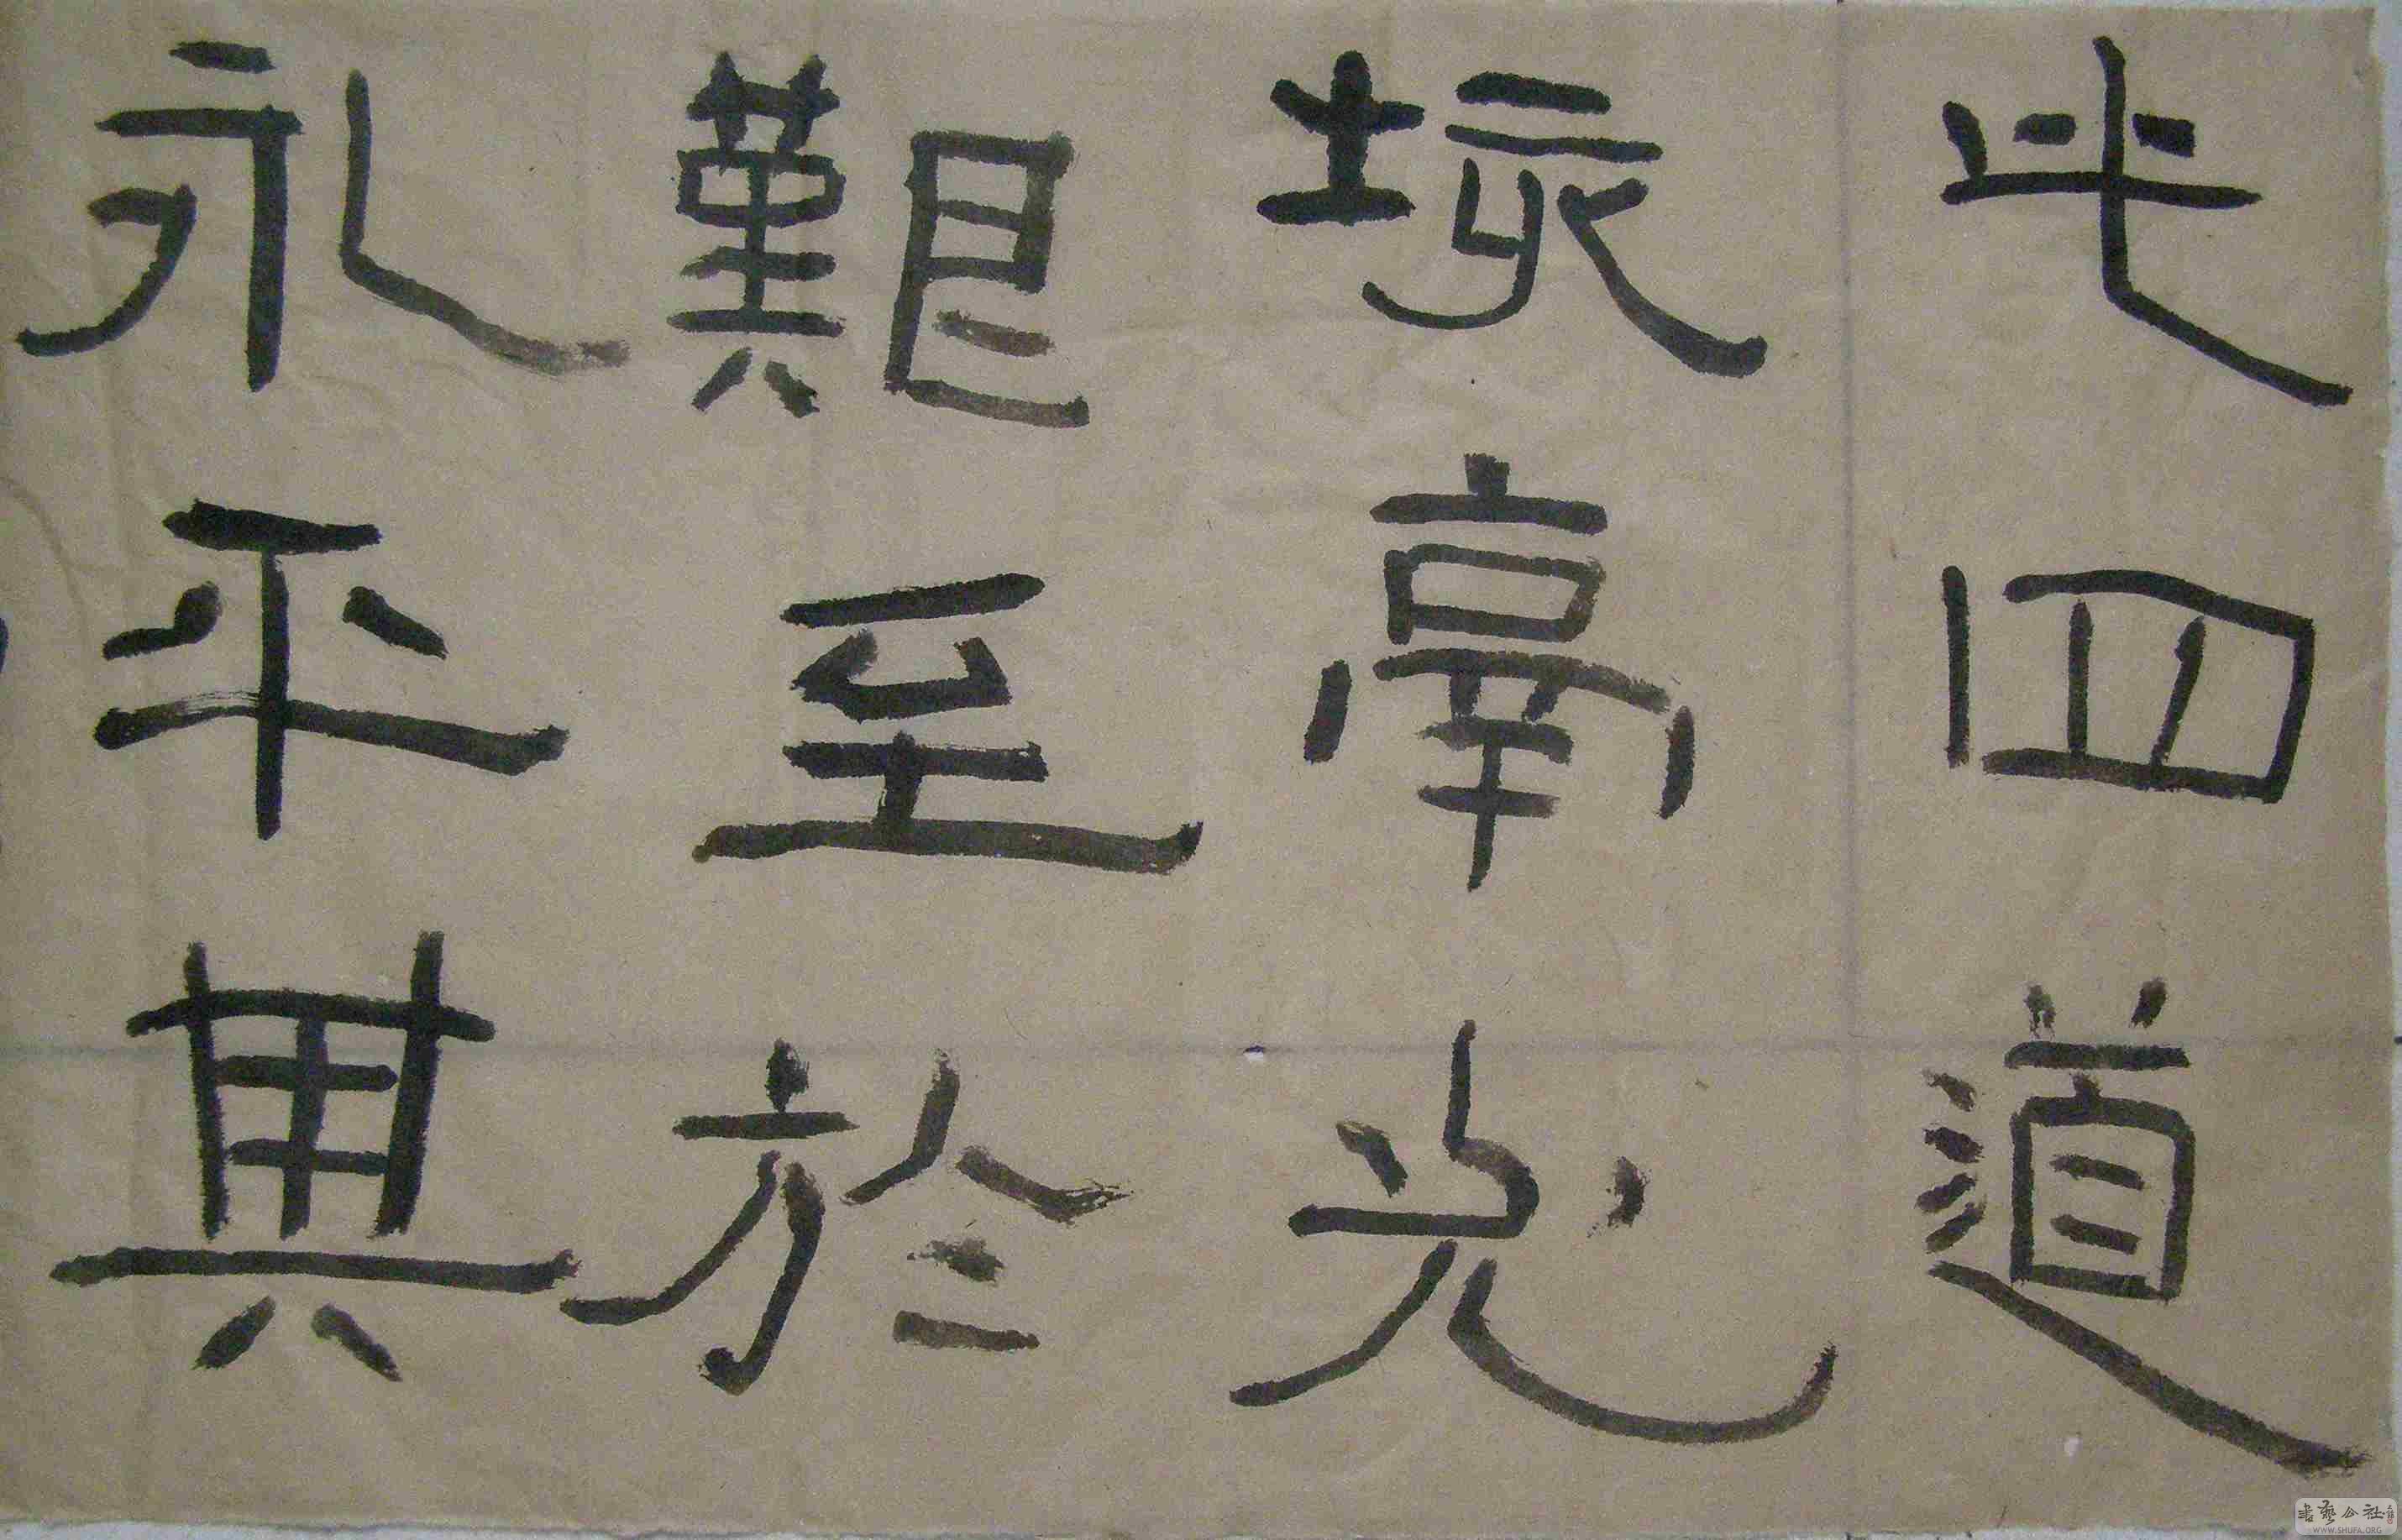 此四道
垓鬲尤
艱至於
永平其
書藝公社
WWW.SHUFA.ORG